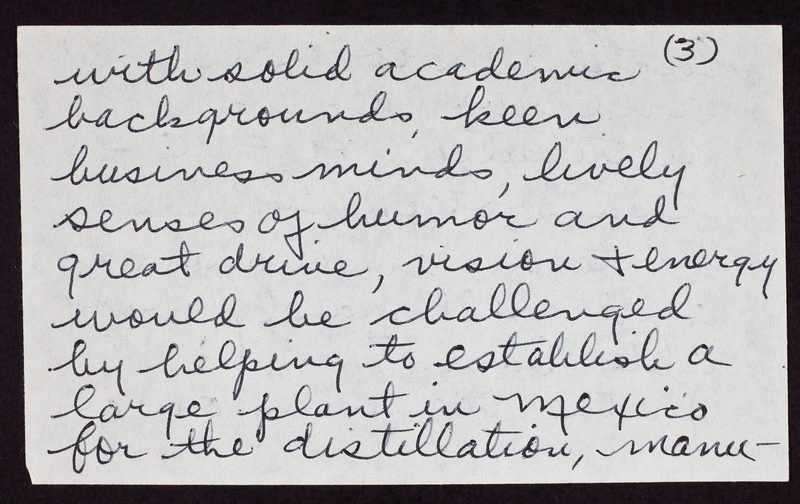 (3)
with solid academic
backgrounds, keen
business minds, lively
senses of humor and
great drive, vision + energy
would be challenged
by helping to establish a
large plant in Mexico
for the distillation, manu-